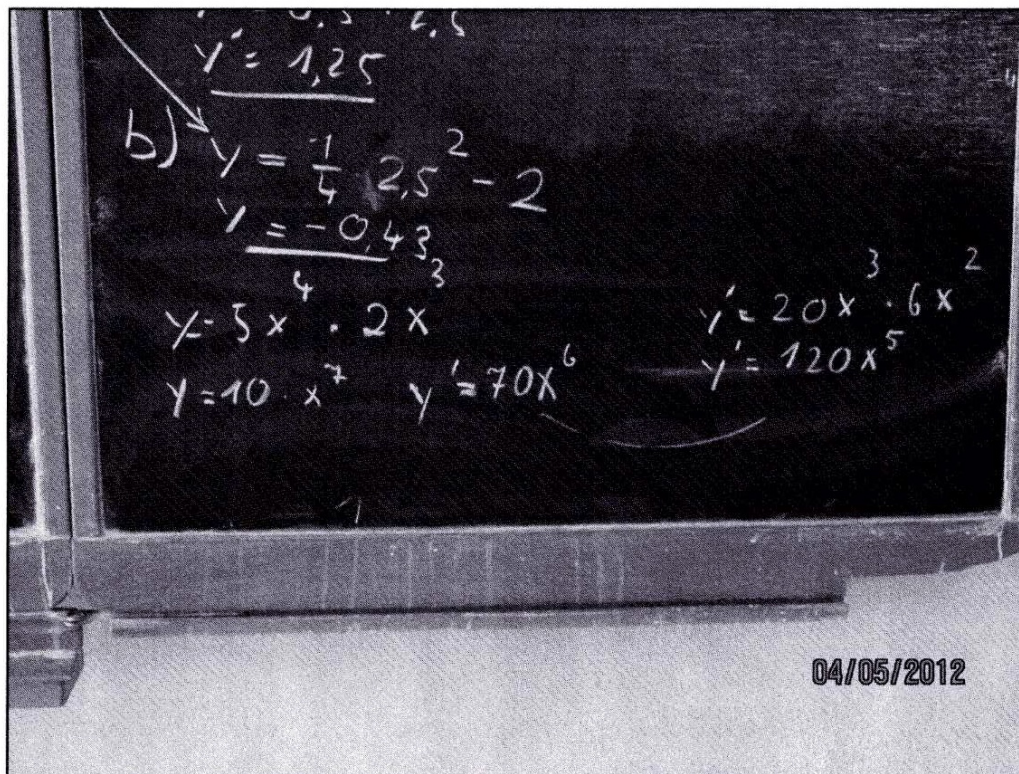 y' = 1,25
b) y = 1/4 · 2,5² - 2
y = -0,43
y = 5x⁴ · 2x³
y = 10 · x⁷ y' = 70x⁶
y' = 20x³ · 6x²
y' = 120x⁵
04/05/2012